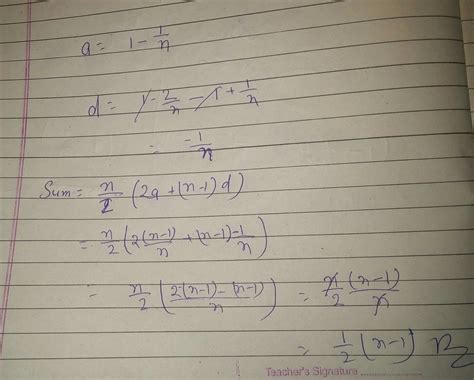 a = 1 - 1/n
d = 1 - 2/n - 1 + 1/n
= -1/n
Sum = n/2 (2a + (n-1)d)
= n/2 (2(n-1)/n + (n-1) -1/n)
= n/2 (2(n-1) - (n-1)/n) = n/2 (n-1)/n
= 1/2 (n-1)
Teacher's Signature